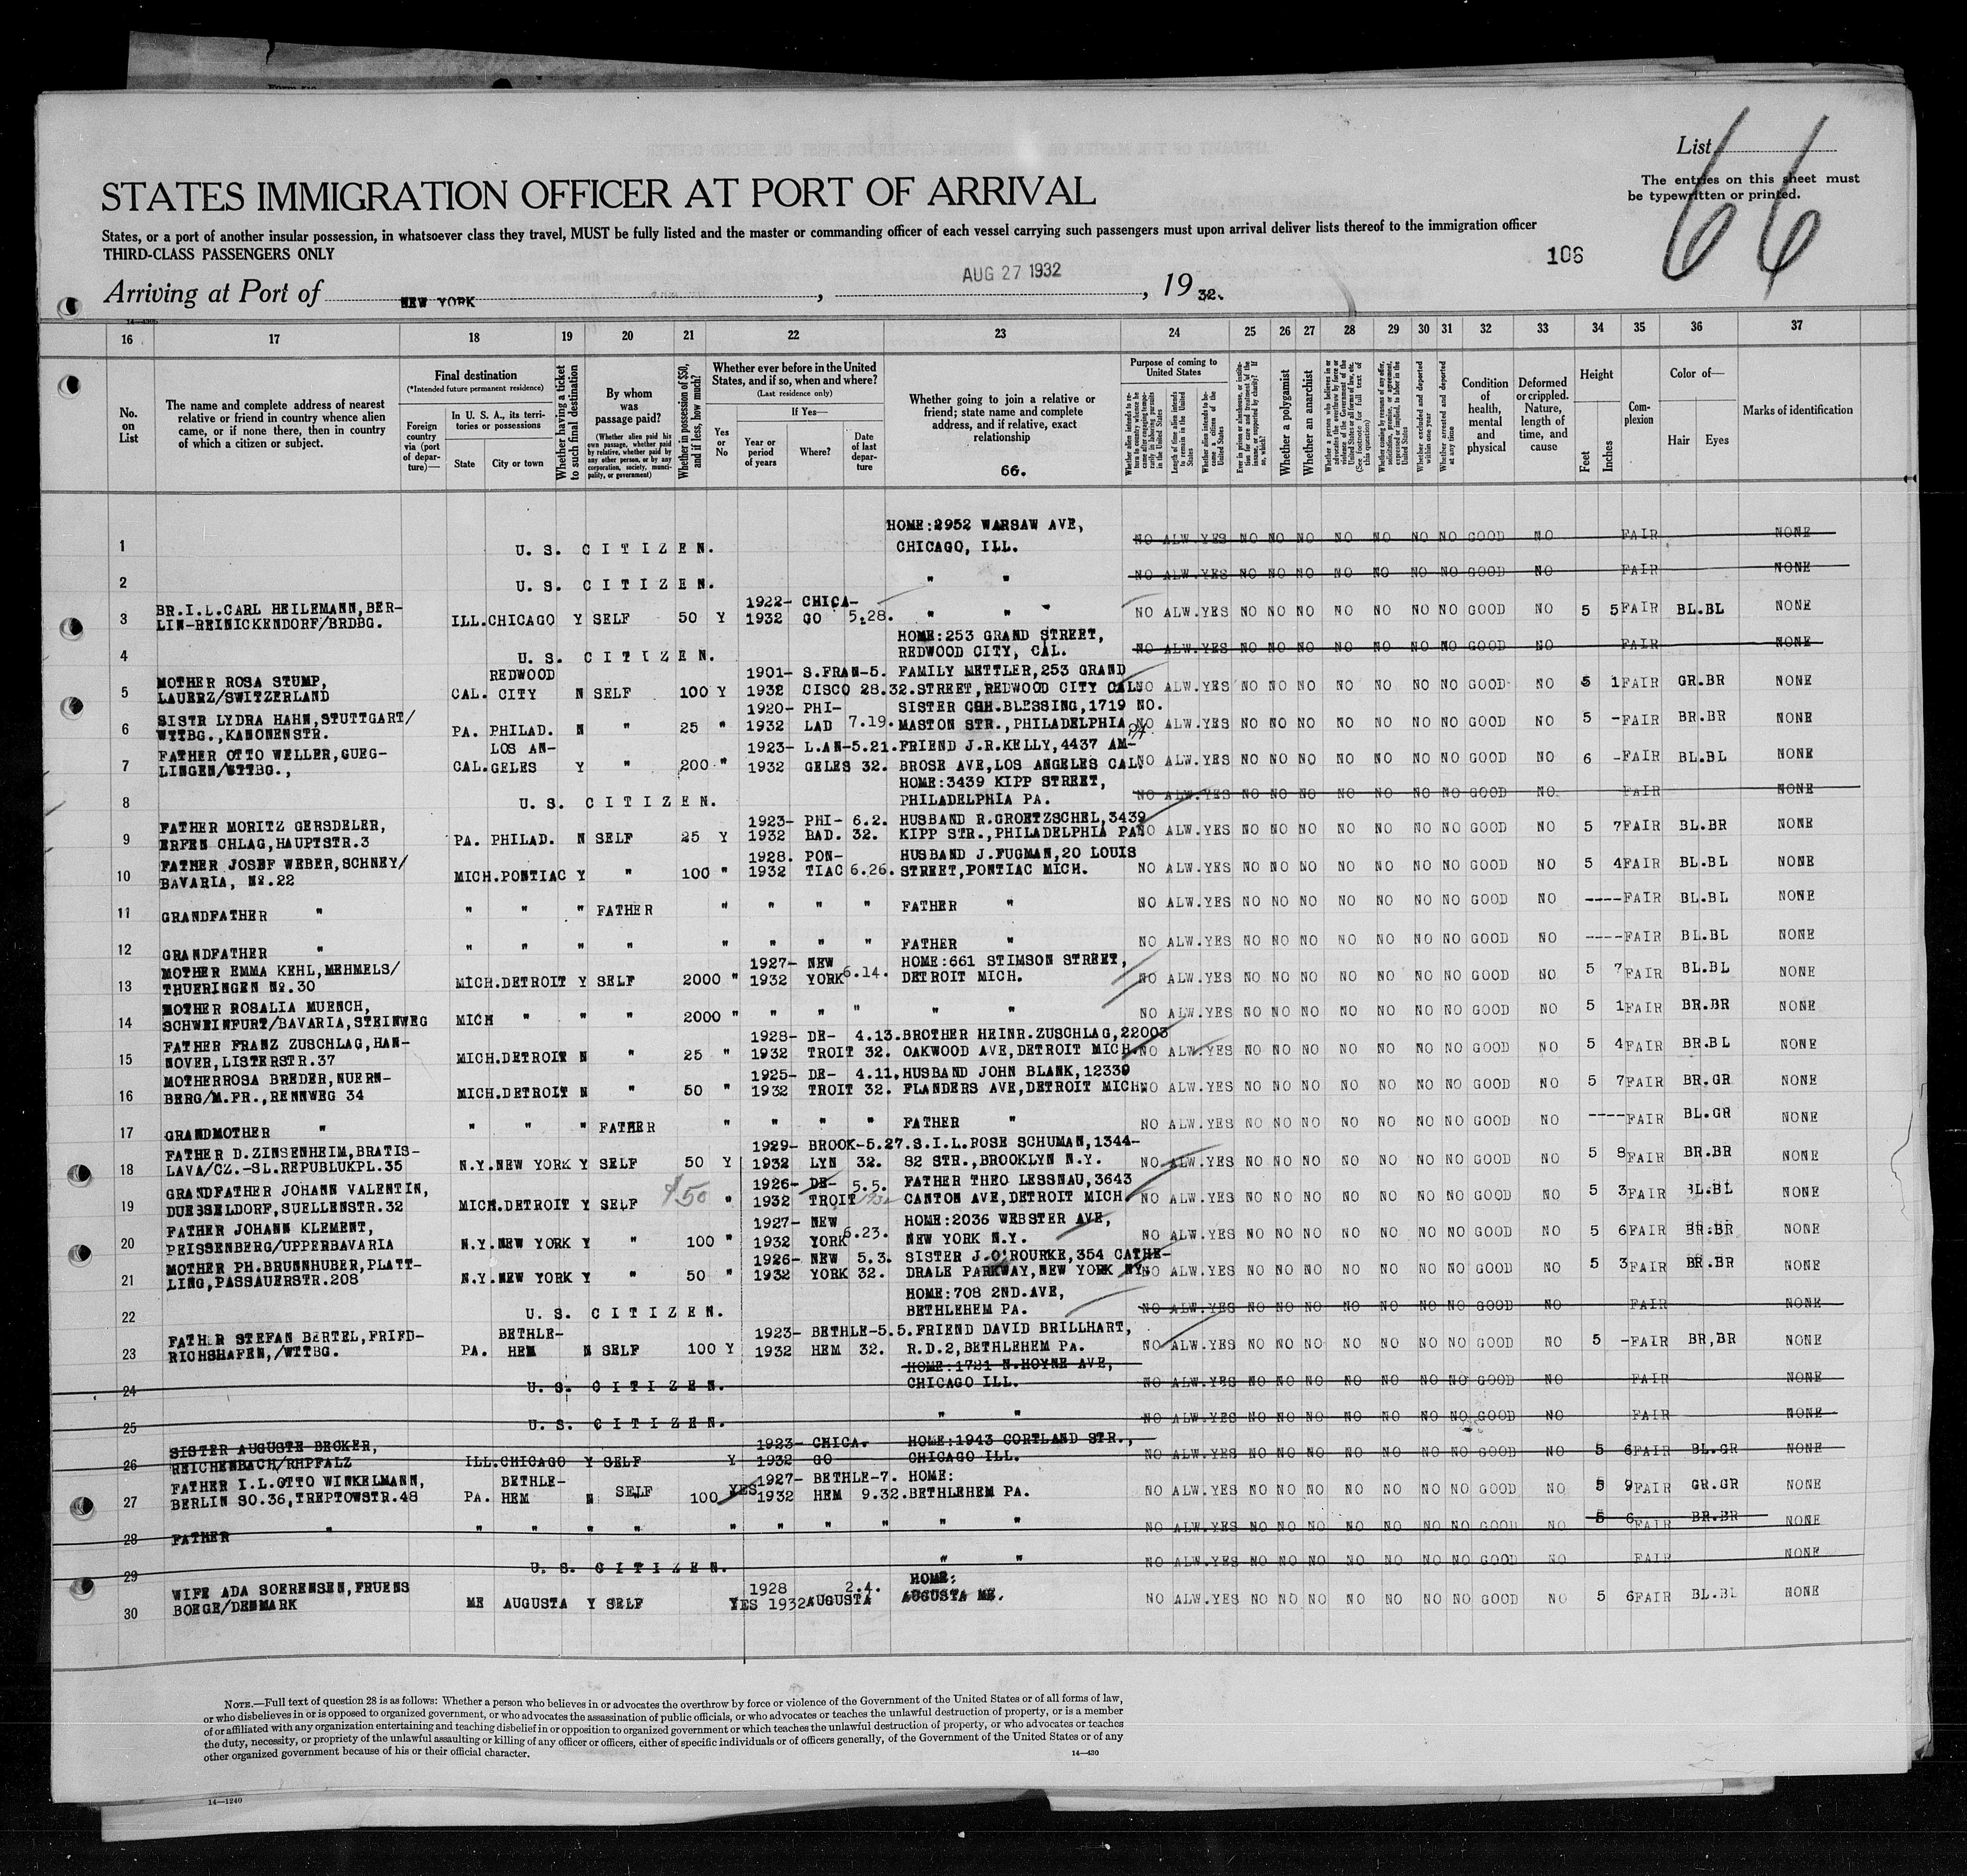 List
66
The entries on this sheet must
be typewritten or printed.
STATES IMMIGRATION OFFICER AT PORT OF ARRIVAL
States, or a port of another insular possession, in whatsoever class they travel, MUST be fully listed and the master or commanding officer of each vessel carrying such passengers must upon arrival deliver lists thereof to the immigration officer
THIRD-CLASS PASSENGERS ONLY
106
Arriving at Port of NEW YORK, AUG 27 1932, 19 32.
16 17 18 19 20 21 22 23 24 25 26 27 28 29 30 31 32 33 34 35 36 37
No. on List
The name and complete address of nearest
relative or friend in country whence alien
came, or if none there, then in country
of which a citizen or subject.
Final destination
(*Intended future permanent residence)
Foreign country via (port of departure)—
In U. S. A., its territories or possessions
State City or town
Whether having a ticket to such final destination
By whom was passage paid?
(Whether alien paid his own passage, whether paid by relative, whether paid by any other person, or by any corporation, society, municipality, or government)
Whether in possession of $50, and if less, how much?
Whether ever before in the United States, and if so, when and where?
(Last residence only)
Yes or No
If Yes—
Year or period of years
Where?
Date of last departure
Whether going to join a relative or
friend; state name and complete
address, and if relative, exact
relationship
66.
Purpose of coming to United States
Whether a polygamist
Whether an anarchist
Condition of health, mental and physical
Deformed or crippled. Nature, length of time, and cause
Height
Feet Inches
Complexion
Color of—
Hair Eyes
Marks of identification
HOME:2952 WARSAW AVE,
1 U. S. CITIZEN. CHICAGO, ILL. NO ALW.YES NO NO NO NO NO NO NO GOOD NO FAIR NONE
2 U. S. CITIZEN. " " NO ALW.YES NO NO NO NO NO NO NO GOOD NO FAIR NONE
BR.I.L.CARL HEILEMANN,BER- 1922- CHICA-
3 LIN-REINICKENDORF/BRDBG. ILL.CHICAGO Y SELF 50 Y 1932 GO 5.28. " " NO ALW.YES NO NO NO NO NO NO NO GOOD NO 5 5 FAIR BL.BL NONE
HOME:253 GRAND STREET,
4 U. S. CITIZEN. REDWOOD CITY, CAL. NO ALW.YES NO NO NO NO NO NO NO GOOD NO FAIR NONE
MOTHER ROSA STUMP, REDWOOD 1901- S.FRAN-5. FAMILY METTLER,253 GRAND
5 LAUERZ/SWITZERLAND CAL. CITY N SELF 100 Y 1932 CISCO 28.32.STREET,REDWOOD CITY CAL. NO ALW.YES NO NO NO NO NO NO NO GOOD NO 5 1 FAIR GR.BR NONE
SISTR LYDRA HAHN,STUTTGART/ 1920- PHI- SISTER CHH.BLESSING,1719 NO.
6 WTTBG.,KANONENSTR. PA. PHILAD. N " 25 " 1932 LAD 7.19. MASTON STR.,PHILADELPHIA PA NO ALW.YES NO NO NO NO NO NO NO GOOD NO 5 - FAIR BR.BR NONE
FATHER OTTO WELLER,GUEG- LOS AN- 1923- L.AN-5.21.FRIEND J.R.KELLY,4437 AM-
7 LINGEN/WTTBG., CAL.GELES Y " 200 " 1932 GELES 32. BROSE AVE,LOS ANGELES CAL. NO ALW.YES NO NO NO NO NO NO NO GOOD NO 6 - FAIR BL.BL NONE
HOME:3439 KIPP STREET,
8 U. S. CITIZEN. PHILADELPHIA PA. NO ALW.YES NO NO NO NO NO NO NO GOOD NO FAIR NONE
FATHER MORITZ GERSDELER, 1923- PHI- 6.2. HUSBAND R.GROETZSCHEL,3439
9 ERFEN CHLAG,HAUPTSTR.3 PA. PHILAD. N SELF 25 Y 1932 BAD. 32. KIPP STR.,PHILADELPHIA PA NO ALW.YES NO NO NO NO NO NO NO GOOD NO 5 7 FAIR BL.BR NONE
FATHER JOSEF WEBER,SCHNEY/ 1928. PON- HUSBAND J.FUGMAN,20 LOUIS
10 BAVARIA, Nº.22 MICH.PONTIAC Y " 100 " 1932 TIAC 6.26. STREET,PONTIAC MICH. NO ALW.YES NO NO NO NO NO NO NO GOOD NO 5 4 FAIR BL.BL NONE
11 GRANDFATHER " " " " FATHER " " " " FATHER " NO ALW.YES NO NO NO NO NO NO NO GOOD NO ---- FAIR BL.BL NONE
12 GRANDFATHER " " " " " " " " " FATHER " NO ALW.YES NO NO NO NO NO NO NO GOOD NO ---- FAIR BL.BL NONE
MOTHER EMMA KEHL,MEHMELS/ 1927- NEW HOME:661 STIMSON STREET,
13 THUERINGEN Nº.30 MICH.DETROIT Y SELF 2000 " 1932 YORK 6.14. DETROIT MICH. NO ALW.YES NO NO NO NO NO NO NO GOOD NO 5 7 FAIR BL.BL NONE
MOTHER ROSALIA MUENCH,
14 SCHWEINFURT/BAVARIA,STEINWEG MICH " " " 2000 " " " " " " NO ALW.YES NO NO NO NO NO NO NO GOOD NO 5 1 FAIR BR.BR NONE
FATHER FRANZ ZUSCHLAG,HAN- 1928- DE- 4.13.BROTHER HEINR.ZUSCHLAG,22003
15 NOVER,LISTERSTR.37 MICH.DETROIT N " 25 " 1932 TROIT 32. OAKWOOD AVE,DETROIT MICH. NO ALW.YES NO NO NO NO NO NO NO GOOD NO 5 4 FAIR BR.BL NONE
MOTHERROSA BREDER,NUERN- 1925- DE- 4.11.HUSBAND JOHN BLANK,12339
16 BERG/M.FR.,RENNWEG 34 MICH.DETROIT N " 50 " 1932 TROIT 32. FLANDERS AVE,DETROIT MICH. NO ALW.YES NO NO NO NO NO NO NO GOOD NO 5 7 FAIR BR.GR NONE
17 GRANDMOTHER " " " " FATHER " " " " FATHER " NO ALW.YES NO NO NO NO NO NO NO GOOD NO ---- FAIR BL.GR NONE
FATHER D.ZINSENHEIM,BRATIS- 1929- BROOK-5.27.S.I.L.ROSE SCHUMAN,1344-
18 LAVA/CZ.-SL.REPUBLUKPL.35 N.Y.NEW YORK Y SELF 50 Y 1932 LYN 32. 82 STR.,BROOKLYN N.Y. NO ALW.YES NO NO NO NO NO NO NO GOOD NO 5 8 FAIR BR.BR NONE
GRANDFATHER JOHANN VALENTIN, 1926- DE- 5.5. FATHER THEO LESSNAU,3643
19 DUESSELDORF,SUELLENSTR.32 MICH.DETROIT Y SELF $50 " 1932 TROIT 1932 CANTON AVE,DETROIT MICH. NO ALW.YES NO NO NO NO NO NO NO GOOD NO 5 3 FAIR BL.BL NONE
FATHER JOHANN KLEMENT, 1927- NEW HOME:2036 WEBSTER AVE,
20 PEISSENBERG/UPPERBAVARIA N.Y.NEW YORK Y " 100 " 1932 YORK 6.23. NEW YORK N.Y. NO ALW.YES NO NO NO NO NO NO NO GOOD NO 5 6 FAIR BR.BR NONE
MOTHER PH.BRUNNHUBER,PLATT- 1926- NEW 5.3. SISTER J.O'ROURKE,354 CATHE-
21 LING,PASSAUERSTR.208 N.Y.NEW YORK Y " 50 " 1932 YORK 32. DRALE PARKWAY,NEW YORK NY. NO ALW.YES NO NO NO NO NO NO NO GOOD NO 5 3 FAIR BR.BR NONE
HOME:708 2ND.AVE,
22 U. S. CITIZEN. BETHLEHEM PA. NO ALW.YES NO NO NO NO NO NO NO GOOD NO FAIR NONE
FATHER STEFAN BERTEL,FRIED- BETHLE- 1923- BETHLE-5.5.FRIEND DAVID BRILLHART,
23 RICHSHAFEN,/WTTBG. PA. HEM N SELF 100 Y 1932 HEM 32. R.D.2,BETHLEHEM PA. NO ALW.YES NO NO NO NO NO NO NO GOOD NO 5 - FAIR BR,BR NONE
HOME:1721 N.HOYNE AVE,
24 U. S. CITIZEN. CHICAGO ILL. NO ALW.YES NO NO NO NO NO NO NO GOOD NO FAIR NONE
25 U. S. CITIZEN. " " NO ALW.YES NO NO NO NO NO NO NO GOOD NO FAIR NONE
SISTER AUGUSTE BECKER, 1923- CHICA- HOME:1943 CORTLAND STR.,
26 REICHENBACH/RHPFALZ ILL.CHICAGO Y SELF Y 1932 GO CHICAGO ILL. NO ALW.YES NO NO NO NO NO NO NO GOOD NO 5 6 FAIR BL.GR NONE
FATHER I.L.OTTO WINKELMANN, BETHLE- 1927- BETHLE-7. HOME:
27 BERLIN SO.36,TREPTOWSTR.48 PA. HEM N SELF 100 YES 1932 HEM 9.32.BETHLEHEM PA. NO ALW.YES NO NO NO NO NO NO NO GOOD NO 5 9 FAIR GR.GR NONE
28 FATHER " " " " " " " " " " " NO ALW.YES NO NO NO NO NO NO NO GOOD NO 5 6 FAIR BR.BR NONE
29 U. S. CITIZEN. " " NO ALW.YES NO NO NO NO NO NO NO GOOD NO FAIR NONE
WIFE ADA SOERENSEN,FRUENS 1928 2.4. HOME:
30 BOEGE/DENMARK ME AUGUSTA Y SELF YES 1932 AUGUSTA AUGUSTA ME. NO ALW.YES NO NO NO NO NO NO NO GOOD NO 5 6 FAIR BL.BL NONE
NOTE.—Full text of question 28 is as follows: Whether a person who believes in or advocates the overthrow by force or violence of the Government of the United States or of all forms of law,
or who disbelieves in or is opposed to organized government, or who advocates the assassination of public officials, or who advocates or teaches the unlawful destruction of property, or is a member
of or affiliated with any organization entertaining and teaching disbelief in or opposition to organized government or which teaches the unlawful destruction of property, or who advocates or teaches
the duty, necessity, or propriety of the unlawful assaulting or killing of any officer or officers, either of specific individuals or of officers generally, of the Government of the United States or of any
other organized government because of his or their official character.
14—430
14—1240